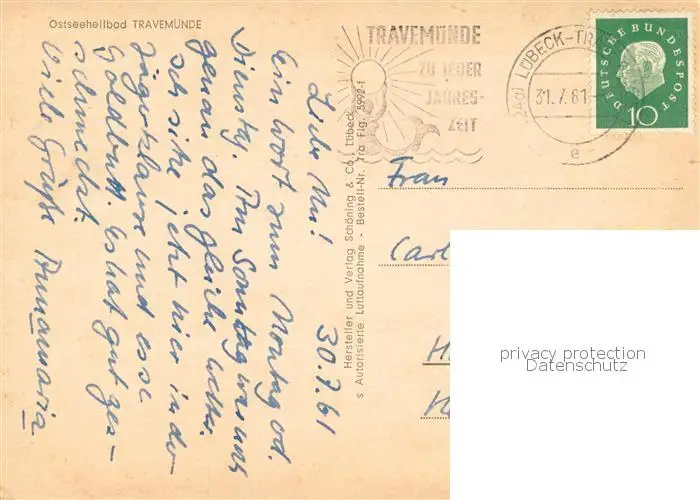 Ostseeheilbad TRAVEMÜNDE
Liebe Mi! 30.7.61
Ein Wort zum Montag od.
Dienstag. Am Sonntag war uns
genau das gleiche Wetter.
Ich sitze jetzt hier in der
Jägerklause und esse
Goldbutt. Es hat gut ges-
schmeckt
Viele Grüße Annamaria
Hersteller und Verlag Schöning & Co., Lübeck
s Autorisierte Luftaufnahme - Bestell-Nr. Tra Flg. 5992-f
TRAVEMÜNDE
ZU JEDER
JAHRES-
ZEIT
(24a) LÜBECK-TRA
31.7.61
e
DEUTSCHE BUNDESPOST
10
Frau
Carl
H
privacy protection
Datenschutz